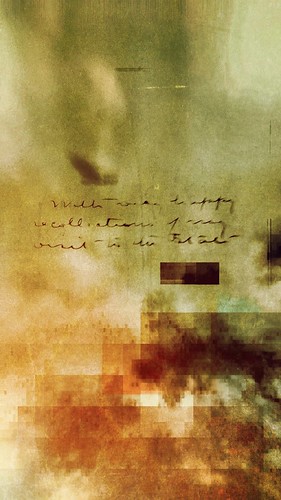 With many happy
recollections of my
visit to the